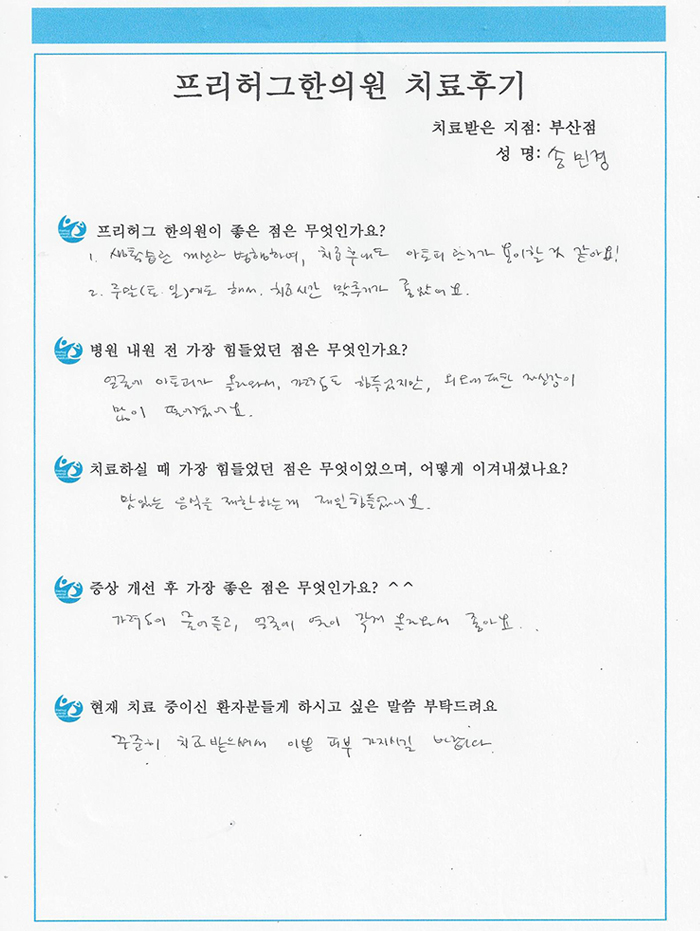 프리허그한의원 치료후기
치료받은 지점: 부산점
성 명: 송민경
프리허그 한의원이 좋은 점은 무엇인가요?
1. 생활습관 개선과 병행하며, 치료후에도 아토피 관리가 용이할 것 같아요!
2. 주말(토.일)에도 해서. 치료시간 맞추기가 좋았어요.
병원 내원 전 가장 힘들었던 점은 무엇인가요?
얼굴에 아토피가 올라와서, 가려움도 힘들었지만, 외모에 대한 자신감이
많이 떨어졌어요.
치료하실 때 가장 힘들었던 점은 무엇이었으며, 어떻게 이겨내셨나요?
맛있는 음식을 제한하는게 제일 힘들었어요.
증상 개선 후 가장 좋은 점은 무엇인가요? ^^
가려움이 줄어들고, 얼굴에 열이 작게 올라와서 좋아요..
현재 치료 중이신 환자분들게 하시고 싶은 말씀 부탁드려요
꾸준히 치료받으셔서 이쁜 피부 가지시길 바랍니다.